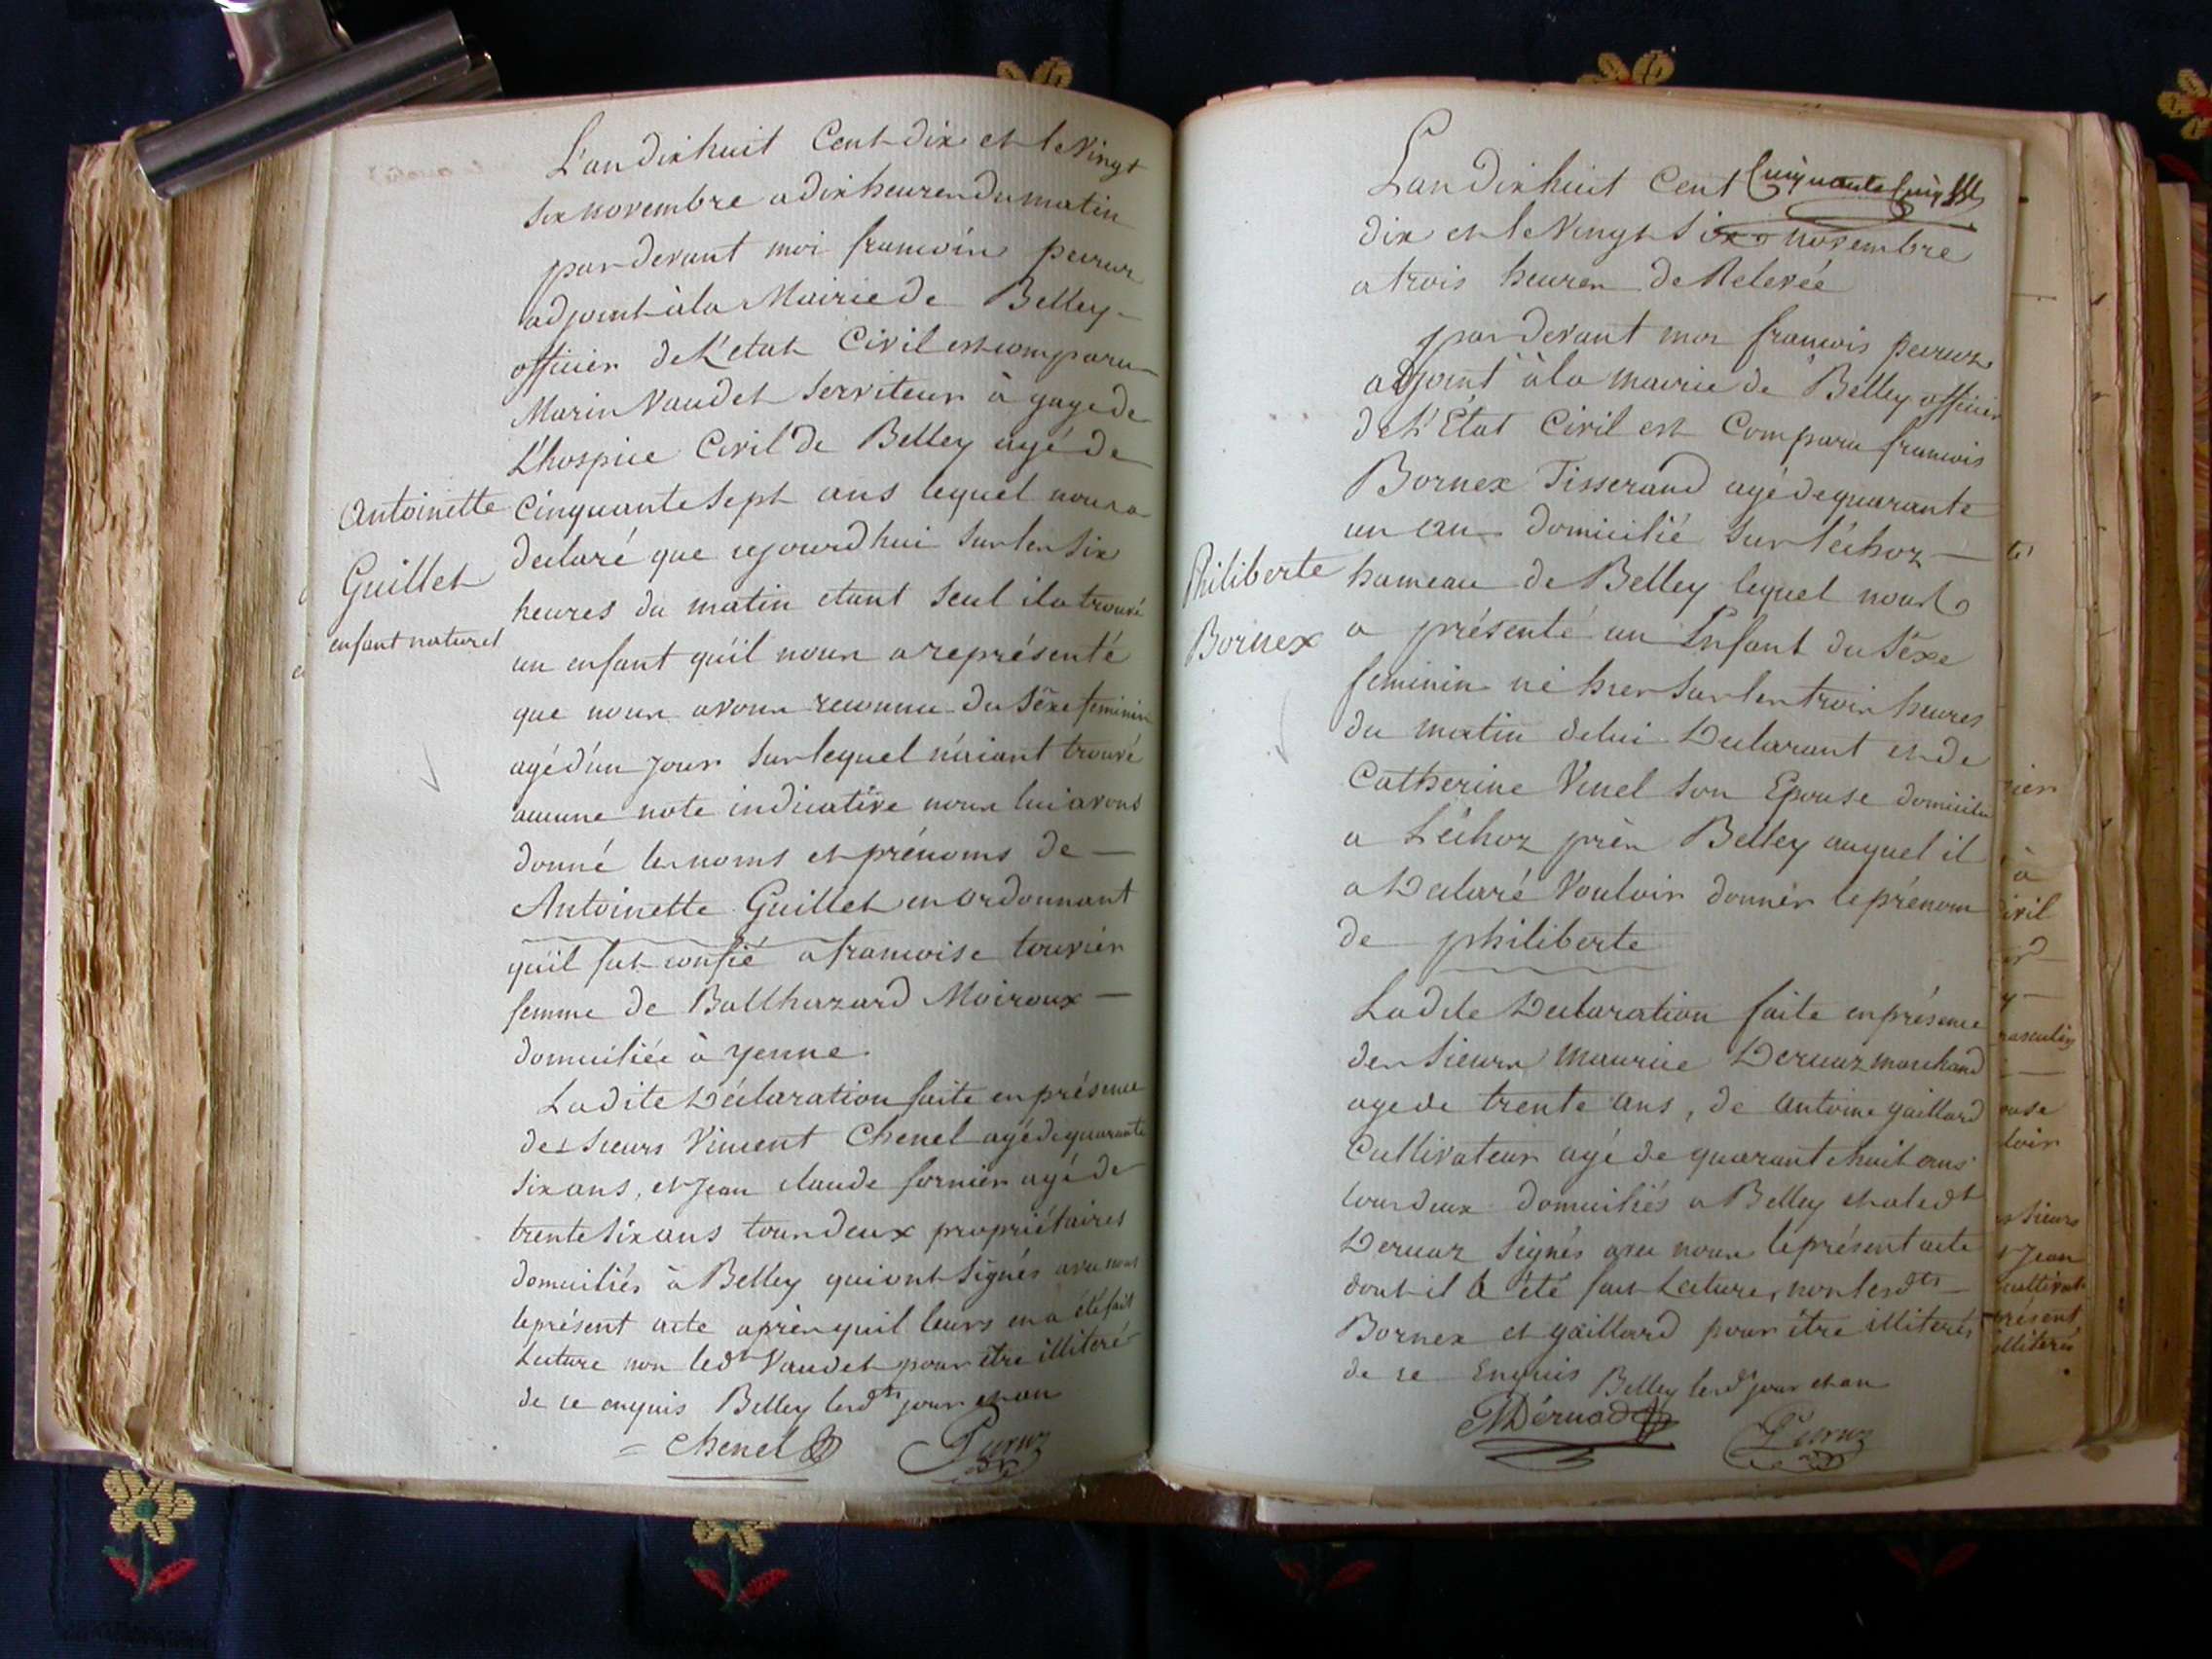 L'an dix huit Cent dix et le Vingt
six novembre a dix heures du matin
par devant moi francois peruz
adjoint à la Mairie de Belley —
officier de L'etat Civil est comparu —
Marin Vaudet Serviteur à gage de
L'hospice Civil de Belley agé de
Cinquante Sept ans lequel nous a
declaré que cejourd'hui Sur les Six
heures du matin etant Seul il a trouvé
un enfant qu'il nous a représenté
que nous avons reconnu du Séxe feminin
agé d'un Jour Sur lequel n'aiant trouvé
aucune note indicative nous lui avons
donné les noms et prénoms de —
Antoinette Guillet en ordonnant
qu'il fut confié a francoise touvier
femme de Balthazard Moiroux —
domiciliée à yenne
La dite Déclaration faite en présence
des Sieurs Vincent Chenel agé de quarante
Six ans, et Jean claude fornier agé de
trente Six ans tous deux propriétaires
domiciliés à Belley qui ont Signés avec nous
le présent acte après quil leurs en a été fait
Lecture non ledt Vaudet pour être illiteré
de ce enquis Belley lesdts jour et an
Chenel Peruz
Antoinette
Guillet
enfant naturel
Cinquante Cinq
L'an dix huit Cent
dix et le Vingt Six novembre
a trois heures de Relevée
par devant moi francois peruz
adjoint à la mairie de Belley officier
de L'État Civil est Comparu francois
Bornex Tisserand agé de quarante
un an domicilié Sur léchoz —
hameau de Belley lequel nous
a présenté un Enfant du Séxe
feminin né hier Sur les trois heures
du matin de lui Declarant et de
Catherine Vinel Son Epouse domiciliée
a Léchoz près Belley auquel il
a Declaré Vouloir donner le prénom
de philiberte
La dite Declaration faite en présence
des Sieurs maurice Deruaz marchand
agé de trente ans, de antoine gaillard
Cultivateur agé de quarante huit ans
tous deux domiciliés a Belley et a ledt
Deruaz Signés avec nous le présent acte
dont il a été fait Lecture, non lesdts —
Bornex et gaillard pour être illiterés
de ce Enquis Belley lesdts jour et an
MDéruad Peruz
Philiberte
Bornex
à
masculin
Sieurs
Jean
présent
illiterés